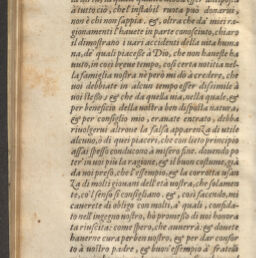 à tutto ciò, che l'instabil ruota può donarvi,
non è chi non sappia. &, oltra che da' miei ra-
gionamenti l'hauete in parte conosciuto, chiaro
il dimostrano i uari accidenti della uita huma
na, de' quali piacesse à Dio, che non haueste ha
uuto, in così breue tempo, così certa notitia nel-
la famiglia uostra. nè però mi dò à credere, che
uoi debbiate in alcun tempo esser dissimile à
uoi stesso; & che da quella uia, nella quale, &
per beneficio della uostra ben disposta natura,
& per consiglio mio, erauate entrato, debba
riuolgerui altroue la falsa apparenza di utile
alcuno, ò di quei piaceri, che con lieto principio
assai spesso conducono à misero fine. douendo po
ter in uoi più la ragione, & il buon costume, già
da uoi preso, che l'essempio, & la corrotta usan
za di molti giouani dell'età uostra, che solamen
te, co'l senso si consigliano. &, così facendo, mi
cauerete di obligo con molti, a' quali, confida-
to nell'ingegno uostro, hò promesso di uoi honora
ta riuscita: come spero, che auuerrà: & douete
hauerne cura per ben uostro, & per dar confor
to à uostro padre, & buon'essempio a' fratelli